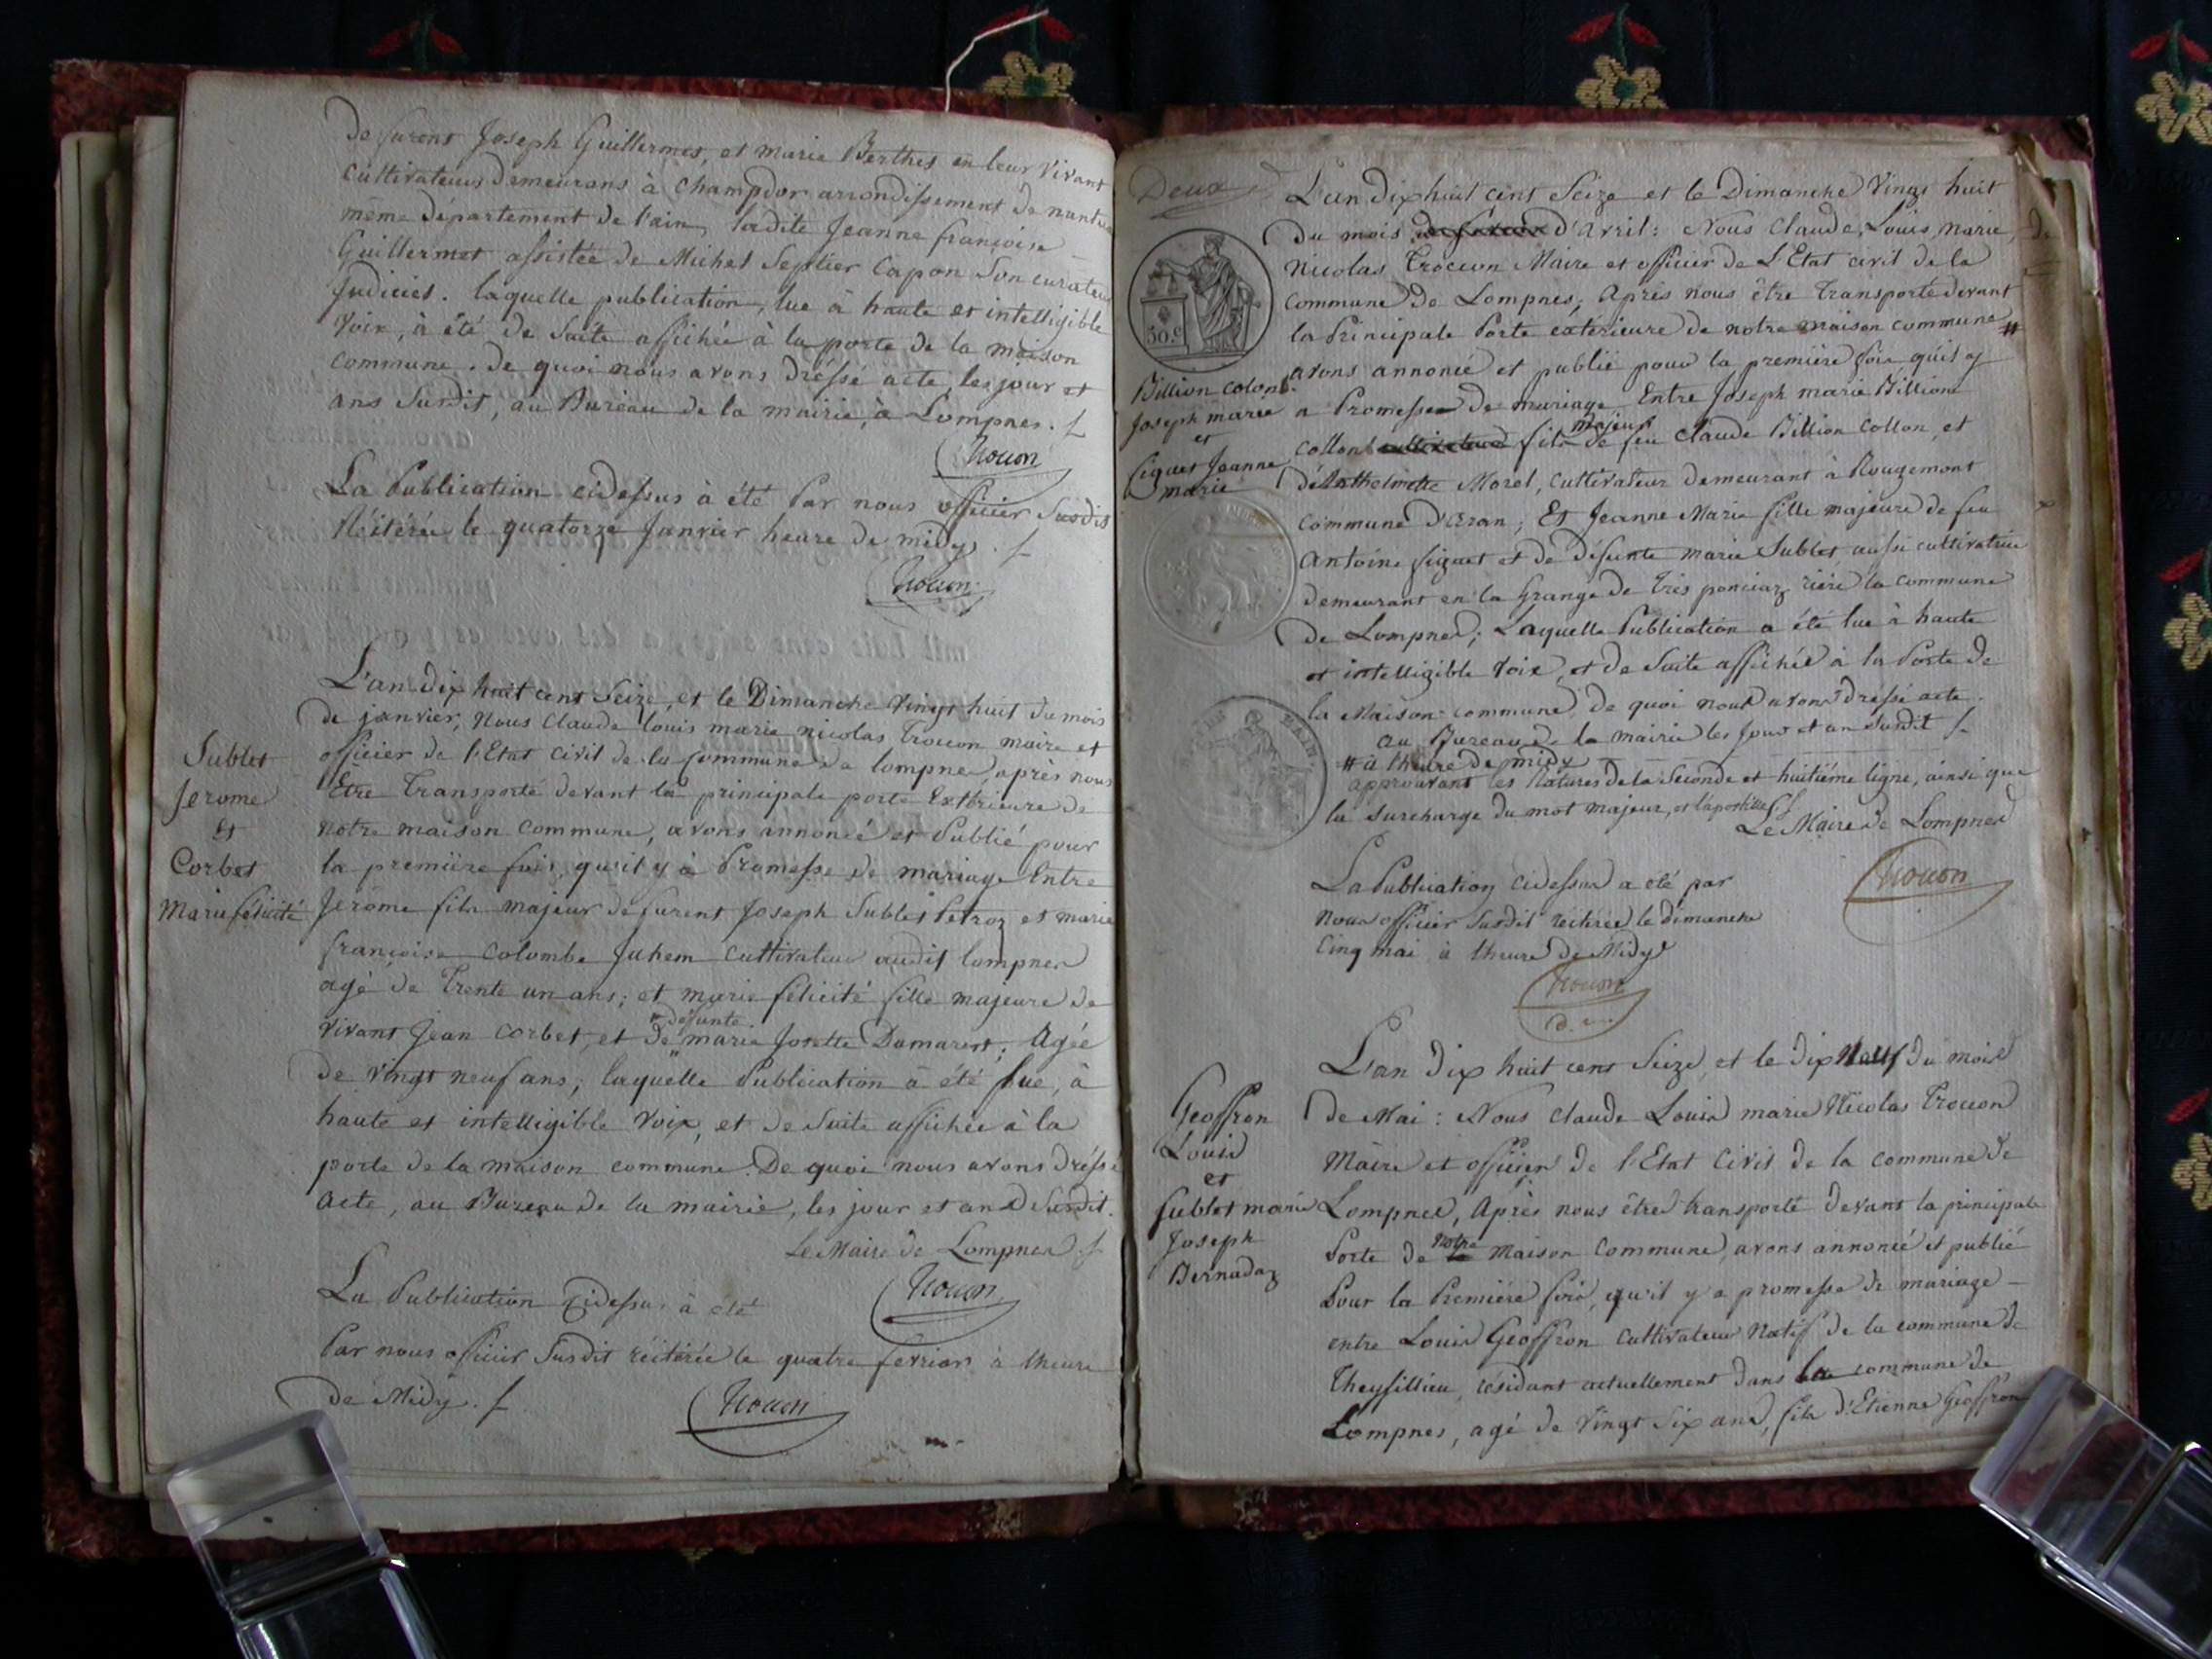 defurent Joseph Guillermet, et marie Berthet en leur vivant
cultivateurs demeurans à champdor arrondissement de nantua
même département de l'ain, ladite Jeanne françoise
Guillermet assistée de Michel Septier Capon Son curateur
Judiciel. laquelle publication, lue à haute et intelligible
Voix, à été de Suite affichée à la porte de la maison
commune. de quoi nous avons dréssé acte, les jour et
ans Susdit, au Bureau de la mairie, à Lompnes.
Trocon
La Publication cidessus à été Par nous officier Susdit
Réitérée le quatorze Janvier heure de midy.
Trocon
L'an dix huit cent Seize, et le Dimanche vingt huit du mois
de janvier; nous claude louis marie nicolas trocon maire et
officier de l'Etat civil de la commune de lompnes, après nous
Etre Transporté devant la principale porte Extérieure de
notre maison commune, avons annoncé et Publié pour
la première fois, qu'il y à Promesse de mariage Entre
Jerôme fils majeur defurent Joseph Sublet Petroz et marie
françoise Colombe Juhem cultivateur audit lompnes
agé de Trente un ans; et marie félicité fille majeure de
vivant Jean Corbet, et de défunte marie Josette Damarest; Agée
de vingt neuf ans; laquelle Publication à été lue, à
haute et intelligible Voix, et de Suite affichée à la
porte de la maison commune. De quoi nous avons dréssé
acte, au Bureau de la mairie, les jour et an Susdit.
Le Maire de Lompnes
Trocon
Sublet
Jerome
Et
Corbet
Marie félicité
La Publication cidessus à été
Par nous officier Susdit réitérée le quatre fevrier à lheure
de Midy.
Trocon
Deux
50.c
L'an dix huit cent Seize et le Dimanche Vingt huit
du mois d'avril: Nous Claude, Louis, Marie,
Nicolas Trocon Maire et officier de L'Etat civil de la
commune de Lompnes, Après nous être Transporté devant
la Principale Porte extérieure de notre maison commune #
avons annoncé et publié pour la première fois qu'il y
a Promesse de mariage Entre Joseph marie Billion
collon cultivateur fils majeur de feu Claude Billion Collon, et
d'Anthelmette Morel, cultivateur demeurant à Rougemont
commune d'aran; Et Jeanne Marie fille majeure de feu
Antoine figuet et de défunte marie Sublet aussi cultivatrice
demeurant en la Grange de rière la commune
de Lompnes; Laquelle Publication a été lue à haute
et intelligible Voix, et de Suite affichée à la Porte de
la Maison commune, de quoi nous avons dréssé acte.
au Bureau de la mairie les Jour et an Susdit
# à l'heure de midy
approuvant les Ratures de la Seconde et huitième ligne, ainsi que
la surcharge du mot majeur, et lapostille
Le Maire de Lompnes
Trocon
Billion colon
Joseph marie
et
figuet Jeanne
marie
La Publication cidessus a été par
nous officier Susdit réitérée le dimanche
Cinq mai à lheure de Midy
Trocon
L'an dix huit cent Seize, et le dix Neuf du mois
de Mai: Nous Claude Louis marie Nicolas Trocon
Maire et officier de l'Etat Civil de la commune de
Lompnes, Après nous être transporté devant la principale
Porte de notre Maison Commune, avons annoncé et publié
Pour la Première fois, qu'il y a promesse de mariage
entre Louis Geoffron cultivateur Natif de la commune de
Theysillieu, résidant actuellement dans la commune de
Lompnes, agé de vingt Six ans, fils d'Etienne Geoffron
Geoffron
Louis
et
Sublet marie
Joseph
Bernadaz